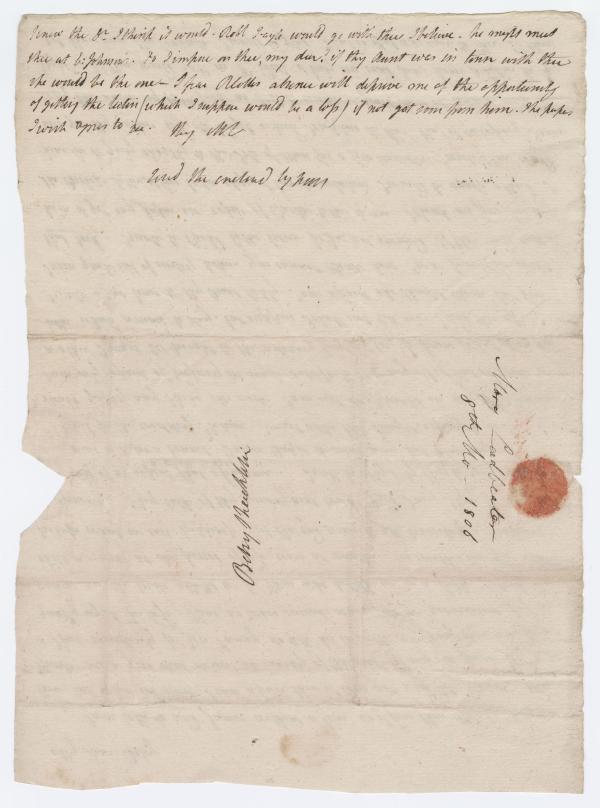 knew the Dr. I think it would. Robt Fayle would go with thee I believe. he might meet
thee at E: Johnson's. To impose on thee, my dear! if thy Aunt was in town with thee
she would be the one - I fear absence will deprive me of the opportunity
of getting the letters (which I suppose would be a loss) if not got from him. The paper
I wish to be. thy ML
read the enclosed by
Mary Leadbeater
8th Mo - 1806
Betsy Shackleton